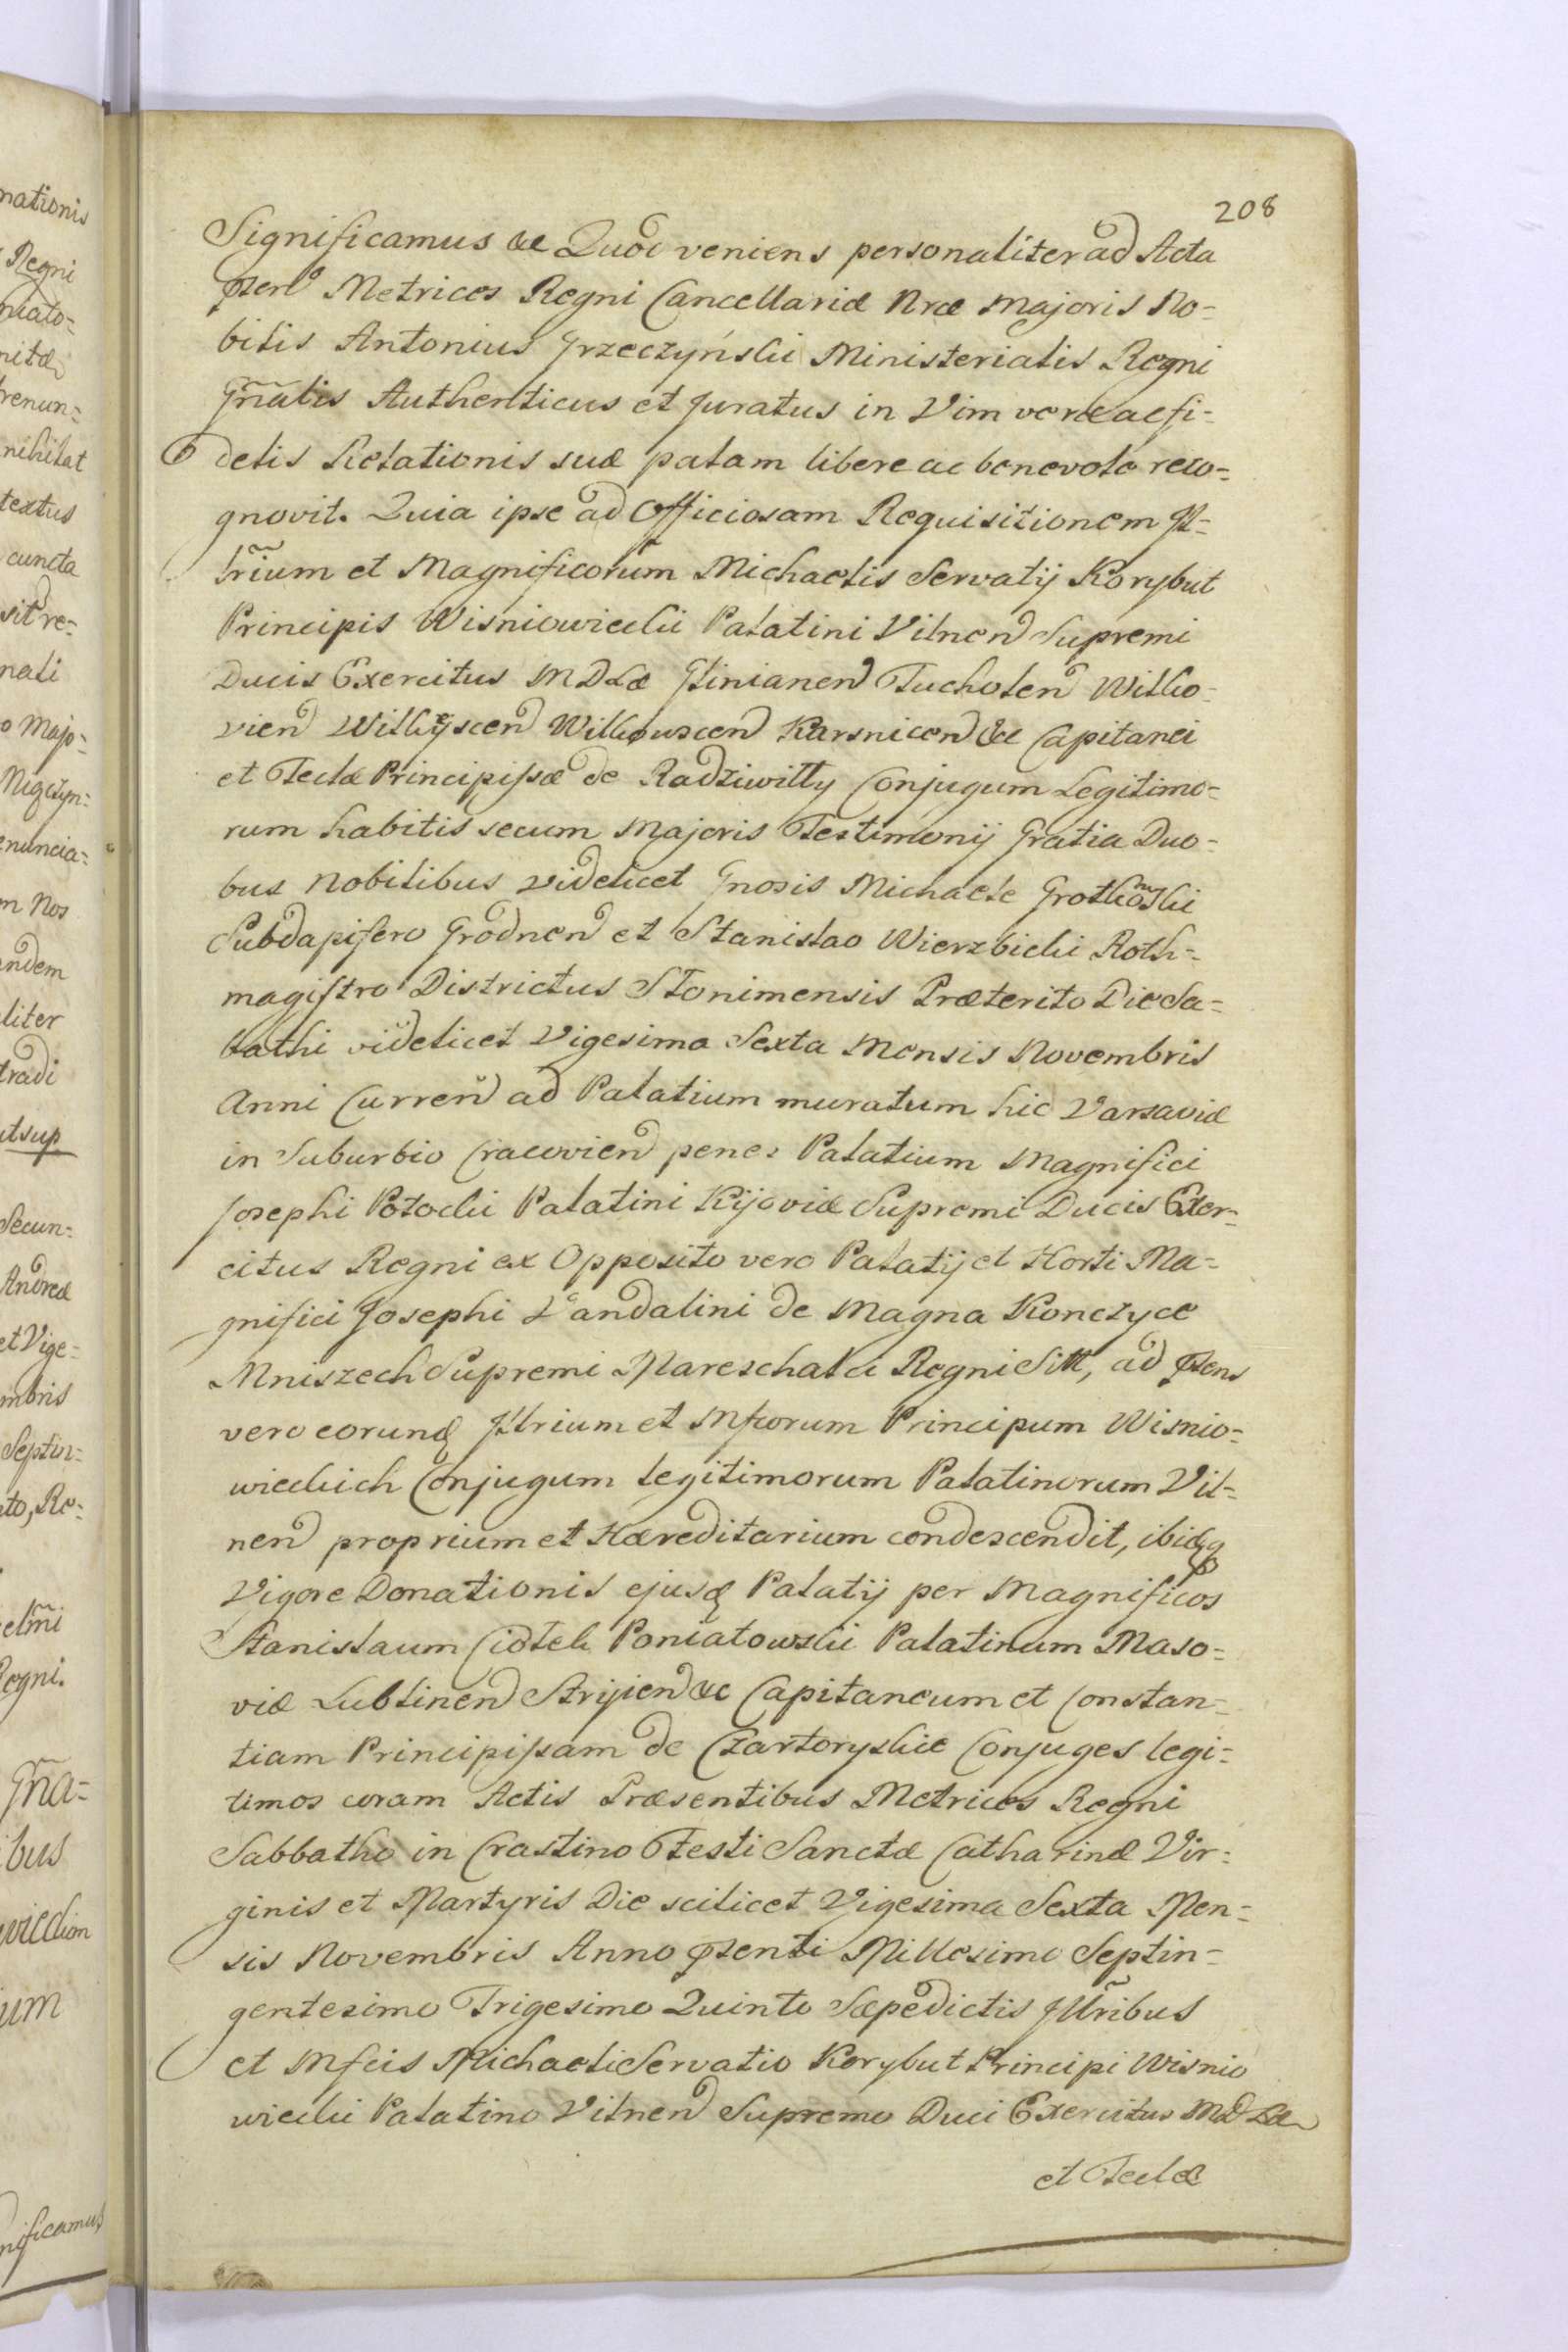 208
Significamus &c Quod veniens personaliter ad Acta
pnta Metrices Regni Cancellariæ Nræ Majoris No=
bilis Antonius Grzeczyński Ministerialis Regni
Gñalis Authenticus et Juratus in Vim veræ ac fi=
delis Relationis suæ palam libere ac benevole reco=
gnovit. Quia ipse ad Officiosam Requisitionem Il=
lrium et Magnificorum Michaelis Servatij Korybut
Principis Wisniowiecki Palatini Vilnen Supremi
Ducis Exercitus MDLæ Glinianen Tucholen Wilko=
vien Wilkiyscen Wilkowscen Karsnicen &c Capitanei
et Teclæ Principissæ de Radziwiłły Conjugum Legitimo=
rum habitis secum Majoris Testimonij Gratia Duo=
bus Nobilibus videlicet Gnosis Michaele Grotkowski
Subdapifero Grodnen et Stanislao Wierzbicki Roth=
magistro Districtus Słonimensis Præterito Die Sa=
bathi videlicet Vigesima Sexta Mensis Novembris
Anni Curren ad Palatium muratum hic Varsaviæ
in Suburbio Cracovien penes Palatium Magnifici
Josephi Potocki Palatini Kijoviæ Supremi Ducis Exer=
citus Regni ex Opposito vero Palatij et Horti Ma=
gnifici Josephi Vandalini de Magna Konczyce
Mniszech Supremi Mareschalci Regni Sitt, ad psens
vero eorund Illrium et Mfcorum Principum Wisnio=
wieckich Conjugum legitimorum Palatinorum Vil=
nen proprium et Hæreditarium condescendit, ibidq
Vigore Donationis ejusd Palatij per Magnificos
Stanislaum Ciołek Poniatowski Palatinum Maso=
viæ Lublinen Stryien &c Capitaneum et Constan=
tiam Principissam de Czartoryskie Conjuges legi=
timos coram Actis Præsentibus Metrices Regni
Sabbatho in Crastino Festi Sanctæ Catharinæ Vir=
ginis et Martyris Die scilicet Vigesima Sexta Men=
sis Novembris Anno psenti Millesimo Septin=
gentesimo Trigesimo Quinto Sæpedictis Illribus
et Mfcis Michaeli Servatio Korybut Principi Wisnio
wiecki Palatino Vilnen Supremo Duci Exercitus MD Læ
et Teclæ